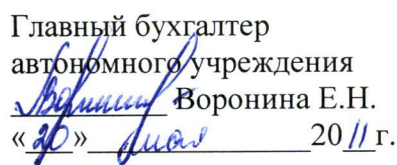 Главный бухгалтер
автономного учреждения
Воронина Е.Н.
«20» мая 2011г.